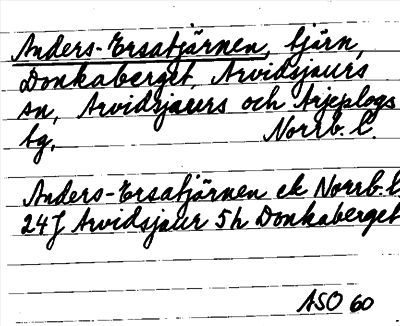 Anders-Ersatjärnen, tjärn,
Donkaberget, Arvidsjaurs
sn, Arvidsjaurs och Arjeplogs
tg, Norrb. l.
Anders-Ersatjärnen ek Norrb. l.
24J Arvidsjaur 5h Donkaberget
ASO 60